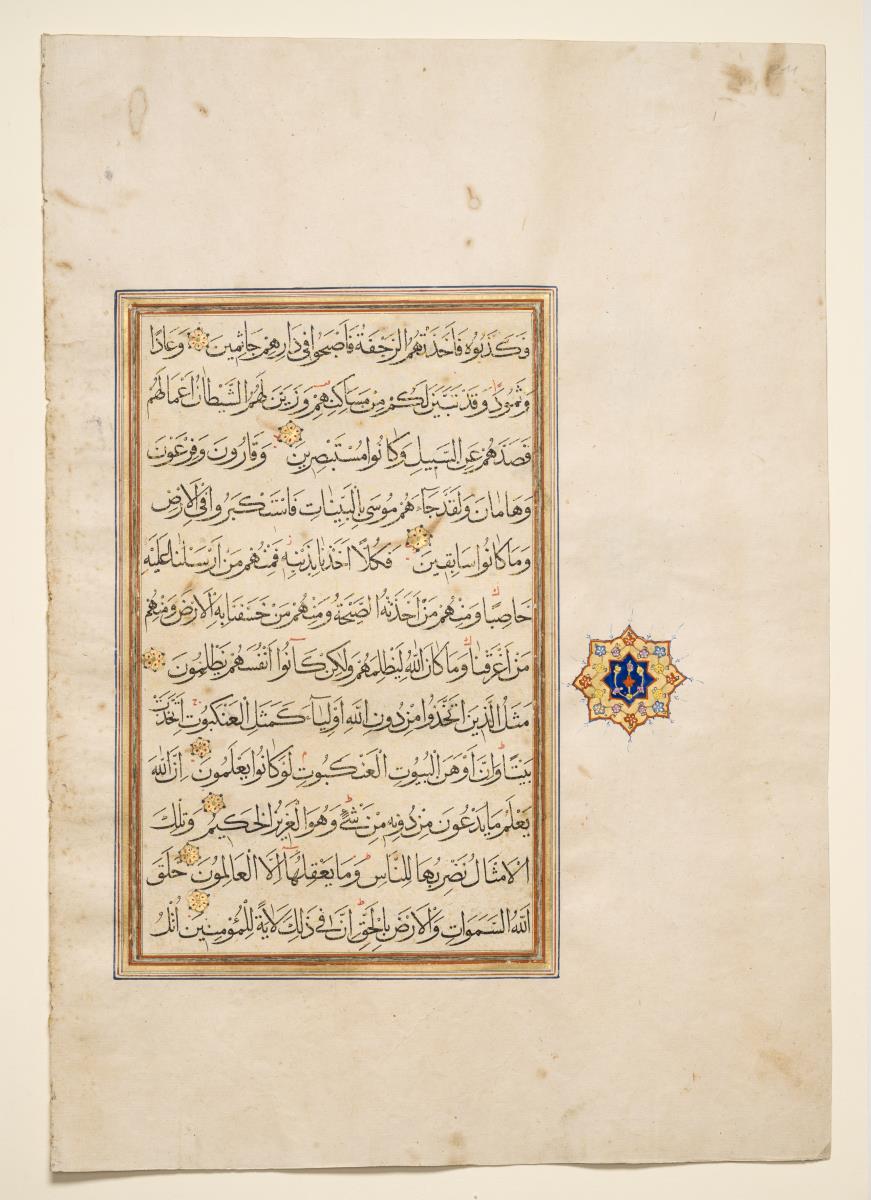 فَكَذَّبُوهُ فَأَخَذَتْهُمُ الرَّجْفَةُ فَأَصْبَحُوا فِي دَارِهِمْ جَاثِمِينَ وَعَادًا
وَثَمُودَا وَقَدْ تَبَيَّنَ لَكُمْ مِنْ مَسَاكِنِهِمْ وَزَيَّنَ لَهُمُ الشَّيْطَانُ أَعْمَالَهُمْ
فَصَدَّهُمْ عَنِ السَّبِيلِ وَكَانُوا مُسْتَبْصِرِينَ وَقَارُونَ وَفِرْعَوْنَ
وَهَامَانَ وَلَقَدْ جَآءَهُمْ مُوسَى بِالْبَيِّنَاتِ فَاسْتَكْبَرُوا فِي الْأَرْضِ
وَمَا كَانُوا سَابِقِينَ فَكُلًّا أَخَذْنَا بِذَنْبِهِ فَمِنْهُمْ مَنْ أَرْسَلْنَا عَلَيْهِ
حَاصِبًا وَمِنْهُمْ مَنْ أَخَذَتْهُ الصَّيْحَةُ وَمِنْهُمْ مَنْ خَسَفْنَا بِهِ الْأَرْضَ وَمِنْهُمْ
مَنْ أَغْرَقْنَا وَمَا كَانَ اللَّهُ لِيَظْلِمَهُمْ وَلَكِنْ كَانُوا أَنْفُسَهُمْ يَظْلِمُونَ
مَثَلُ الَّذِينَ اتَّخَذُوا مِنْ دُونِ اللَّهِ أَوْلِيَآءَ كَمَثَلِ الْعَنْكَبُوتِ اتَّخَذَتْ
بَيْتًا وَإِنَّ أَوْهَنَ الْبُيُوتِ لَبَيْتُ الْعَنْكَبُوتِ لَوْ كَانُوا يَعْلَمُونَ إِنَّ اللَّهَ
يَعْلَمُ مَا يَدْعُونَ مِنْ دُونِهِ مِنْ شَيْءٍ وَهُوَ الْعَزِيزُ الْحَكِيمُ وَتِلْكَ
الْأَمْثَالُ نَضْرِبُهَا لِلنَّاسِ وَمَا يَعْقِلُهَا إِلَّا الْعَالِمُونَ خَلَقَ
اللَّهُ السَّمَوَاتِ وَالْأَرْضَ بِالْحَقِّ إِنَّ فِي ذَلِكَ لَآيَةً لِلْمُؤْمِنِينَ اتْلُ